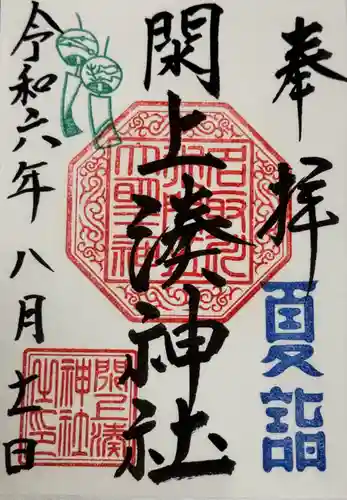 奉拝
夏詣
閖上湊神社
令和六年八月十一日
閖上湊
神社
之印